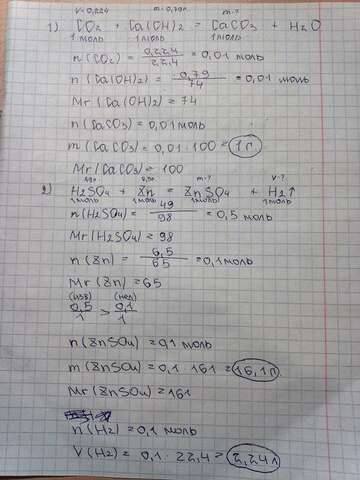 V=0,224 m=0,79г m-?
1) CO₂ + Ca(OH)₂ = CaCO₃ + H₂O
1 моль 1 моль 1 моль
n(CO₂) = 0,224/22,4 = 0,01 моль
n(Ca(OH)₂) = 0,79/74 = 0,01 моль
Mr(Ca(OH)₂) = 74
n(CaCO₃) = 0,01 моль
m(CaCO₃) = 0,01 · 100 = 1 г
Mr(CaCO₃) = 100
49г 6,5г m-? V-?
2) H₂SO₄ + Zn = ZnSO₄ + H₂↑
1 моль 1 моль 1 моль 1 моль
n(H₂SO₄) = 49/98 = 0,5 моль
Mr(H₂SO₄) = 98
n(Zn) = 6,5/65 = 0,1 моль
Mr(Zn) = 65
(изб) (нед)
0,5/1 > 0,1/1
n(ZnSO₄) = 0,1 моль
m(ZnSO₄) = 0,1 · 161 = 16,1 г
Mr(ZnSO₄) = 161
n(H₂) = 0,1 моль
V(H₂) = 0,1 · 22,4 = 2,24 л